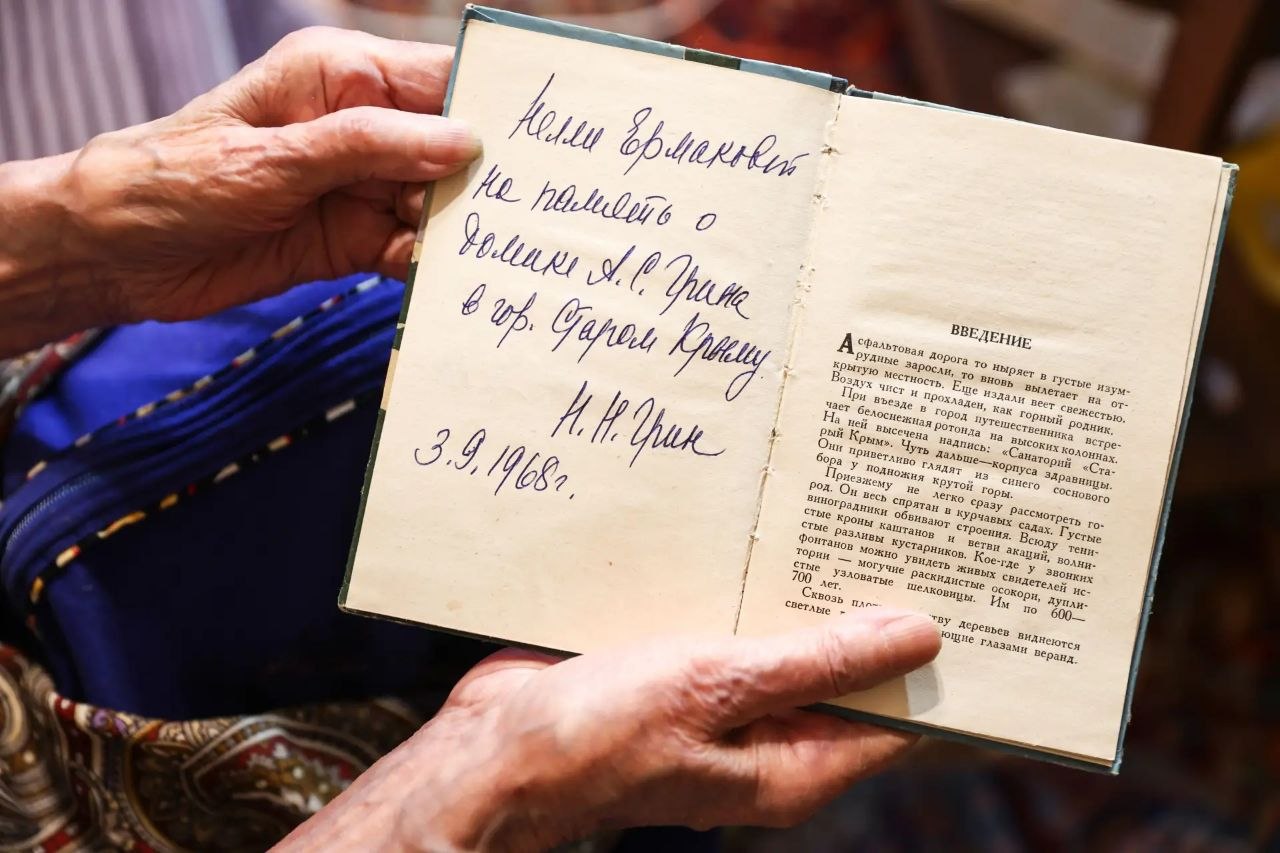 Нелли Ермаковой
на память о
домике А.С. Грина
в гор. Старом Крыму.
Н.Н. Грин
3.9.1968г.
ВВЕДЕНИЕ
Асфальтовая дорога то ныряет в густые изум-
рудные заросли, то вновь вылетает на от-
крытую местность. Еще издали веет свежестью.
Воздух чист и прохладен, как горный родник.
При въезде в город путешественника встре-
чает белоснежная ротонда на высоких колоннах.
На ней высечена надпись: «Санаторий «Ста-
рый Крым». Чуть дальше—корпуса здравницы.
Они приветливо глядят из синего соснового
бора у подножия крутой горы.
Приезжему не легко сразу рассмотреть го-
род. Он весь спрятан в курчавых садах. Густые
виноградники обвивают строения. Всюду тени-
стые кроны каштанов и ветви акаций, волни-
стые разливы кустарников. Кое-где у звонких
фонтанов можно увидеть живых свидетелей ис-
тории — могучие раскидистые осокори, дупли-
стые узловатые шелковицы. Им по 600—
700 лет.
Сквозь деревьев виднеются
светлые глазами веранд.